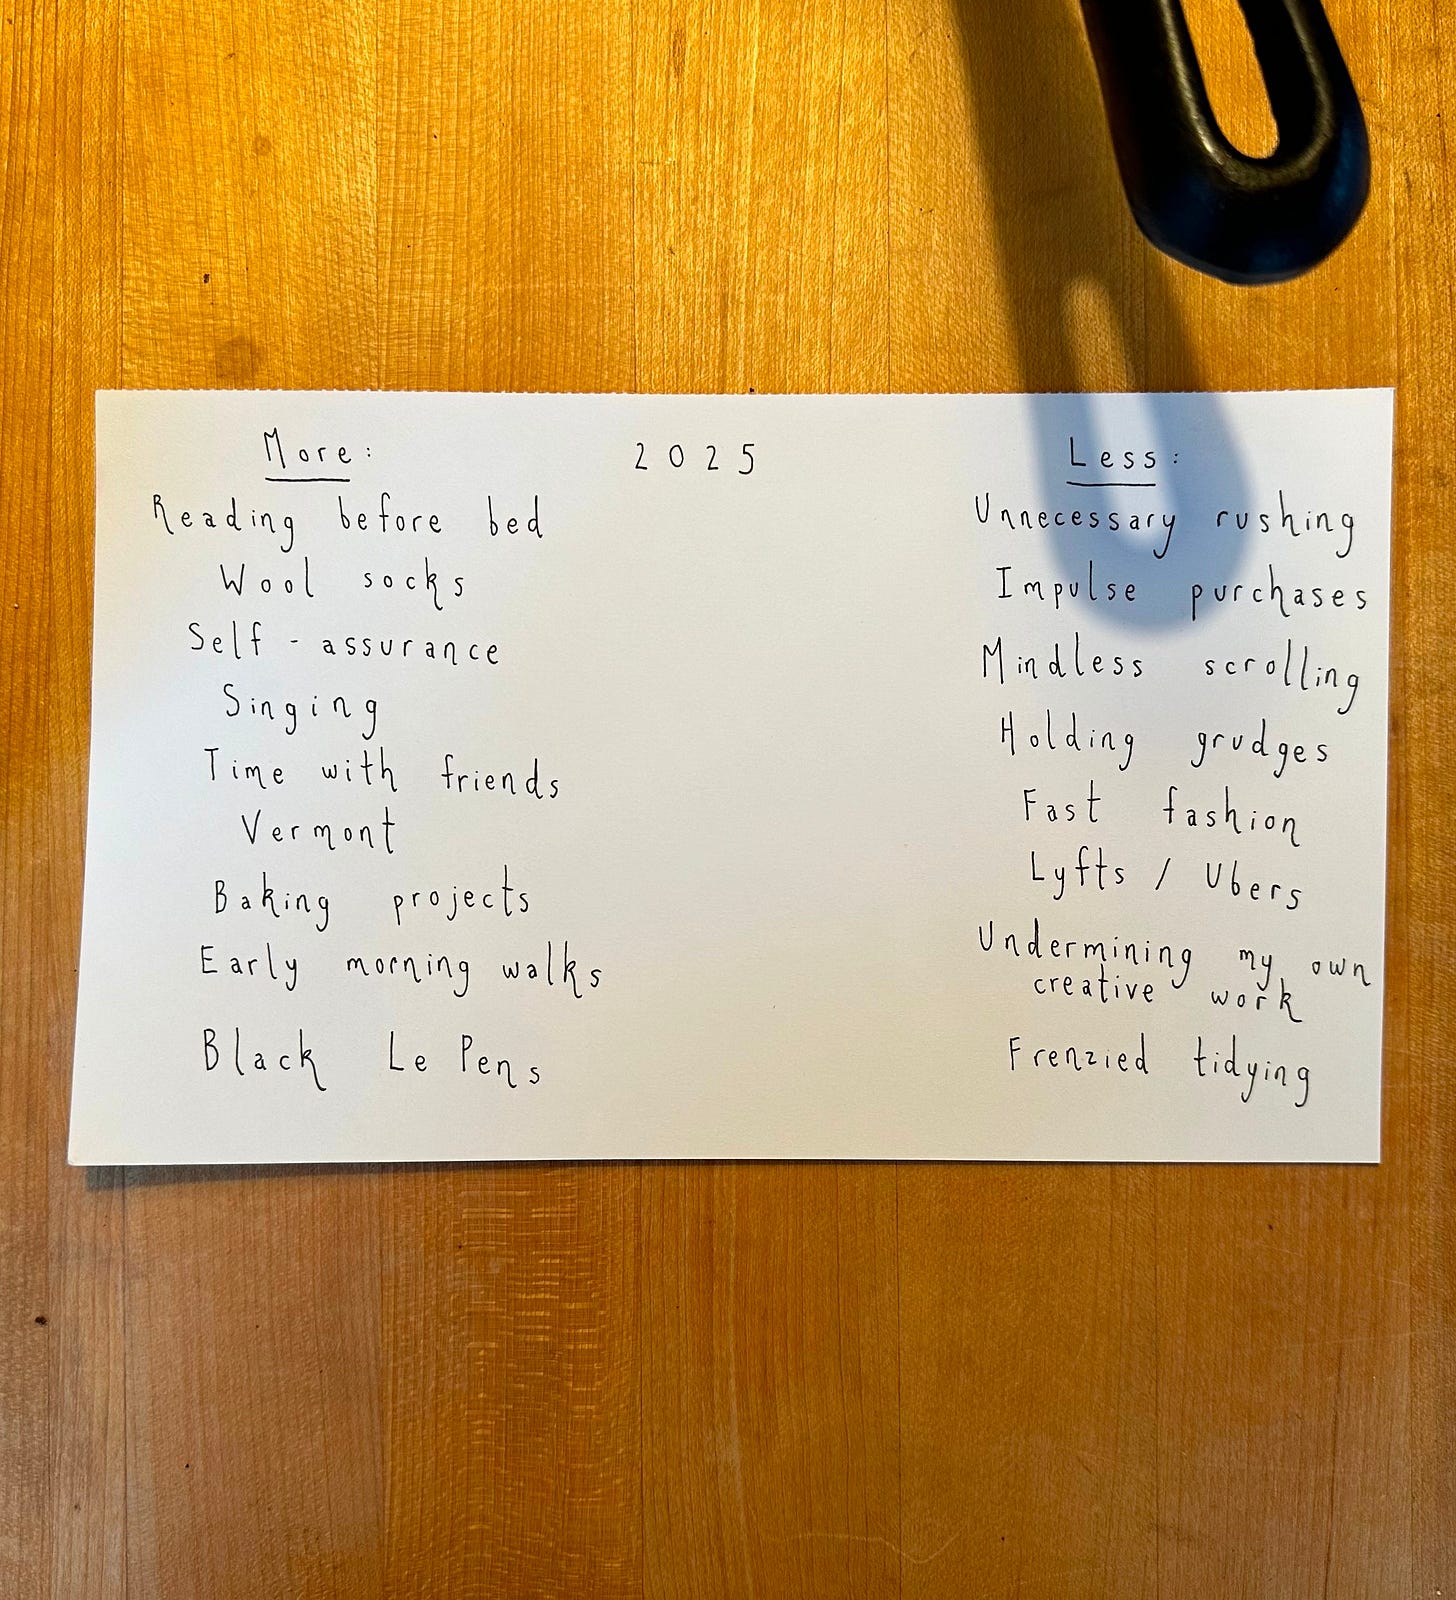 2025
More:
Reading before bed
Wool socks
Self-assurance
Singing
Time with friends
Vermont
Baking projects
Early morning walks
Black Le Pens
Less:
Unnecessary rushing
Impulse purchases
Mindless scrolling
Holding grudges
Fast fashion
Lyfts / Ubers
Undermining my own
creative work
Frenzied tidying